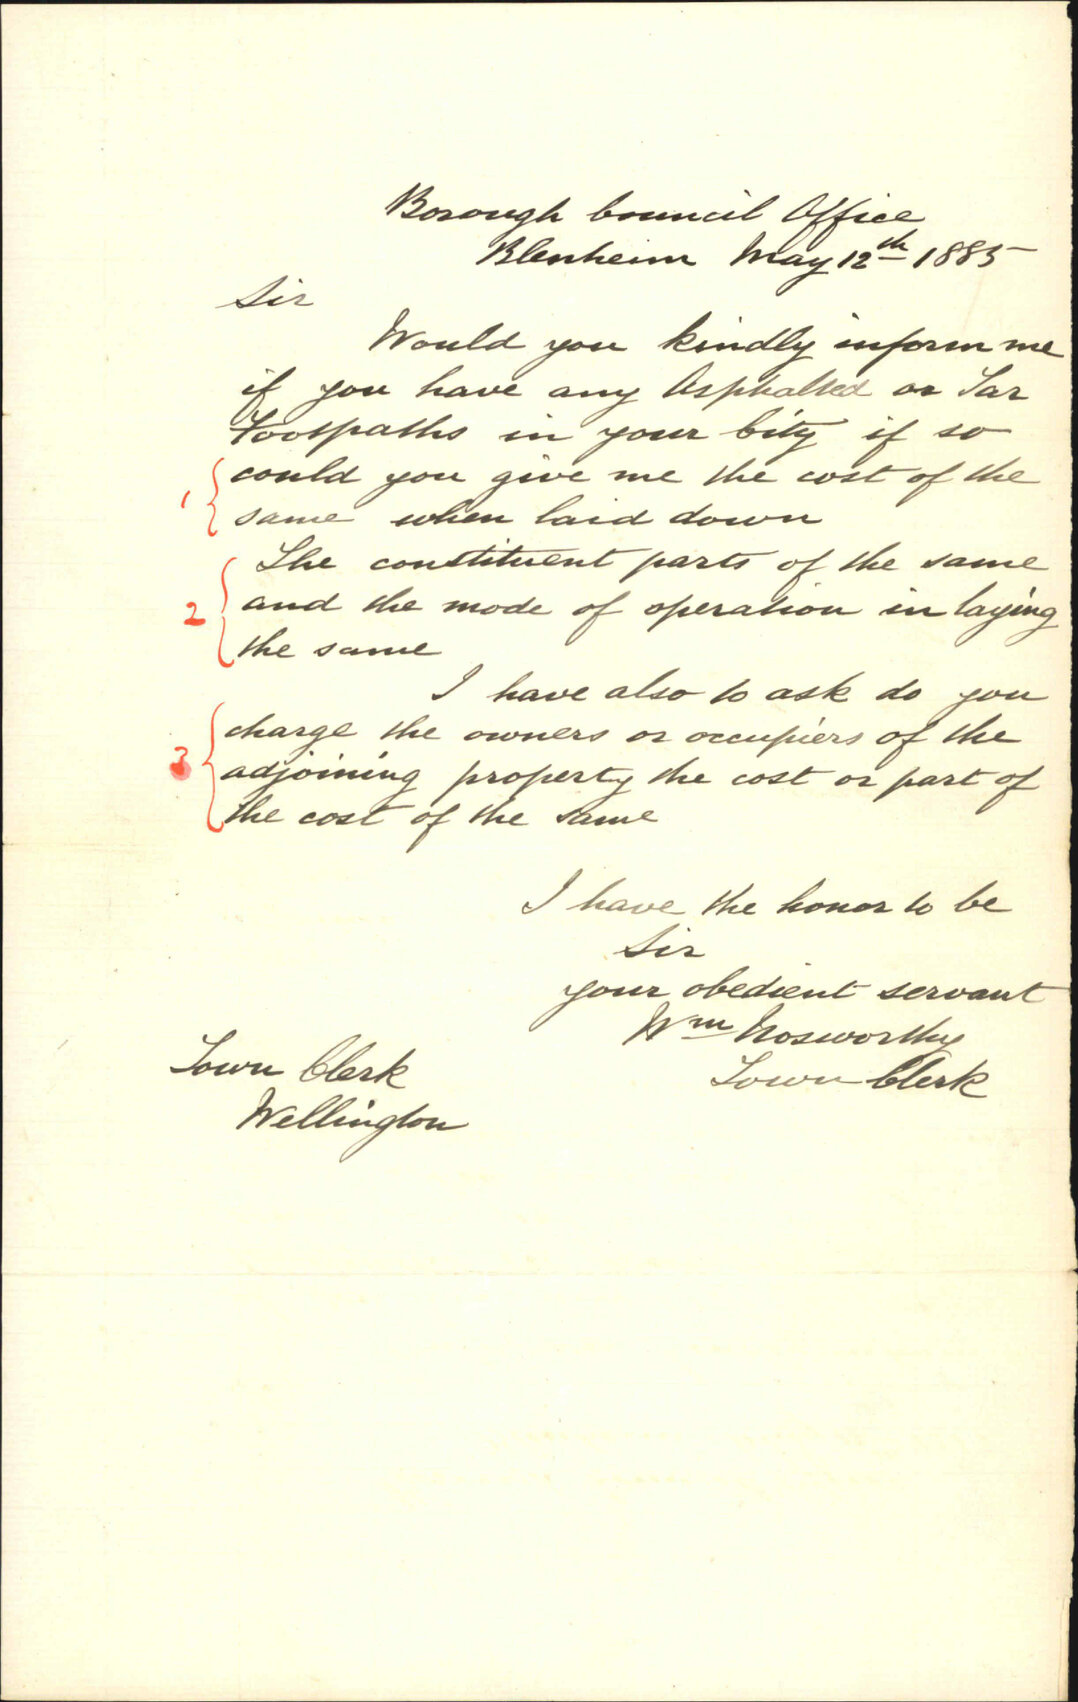 Borough Council Office
Blenheim May 12th 1885
Sir
Would you kindly inform me
if you have any Asphalted or Tar
Footpaths in your City if so
1 could you give me the cost of the
same when laid down
The constituent parts of the same
2 and the mode of operation in laying
the same
I have also to ask do you
charge the owners or occupiers of the
3 adjoining property the cost or part of
the cost of the same
I have the honor to be
Sir
your obedient servant
Wm Nosworthy
Town Clerk
Town Clerk
Wellington